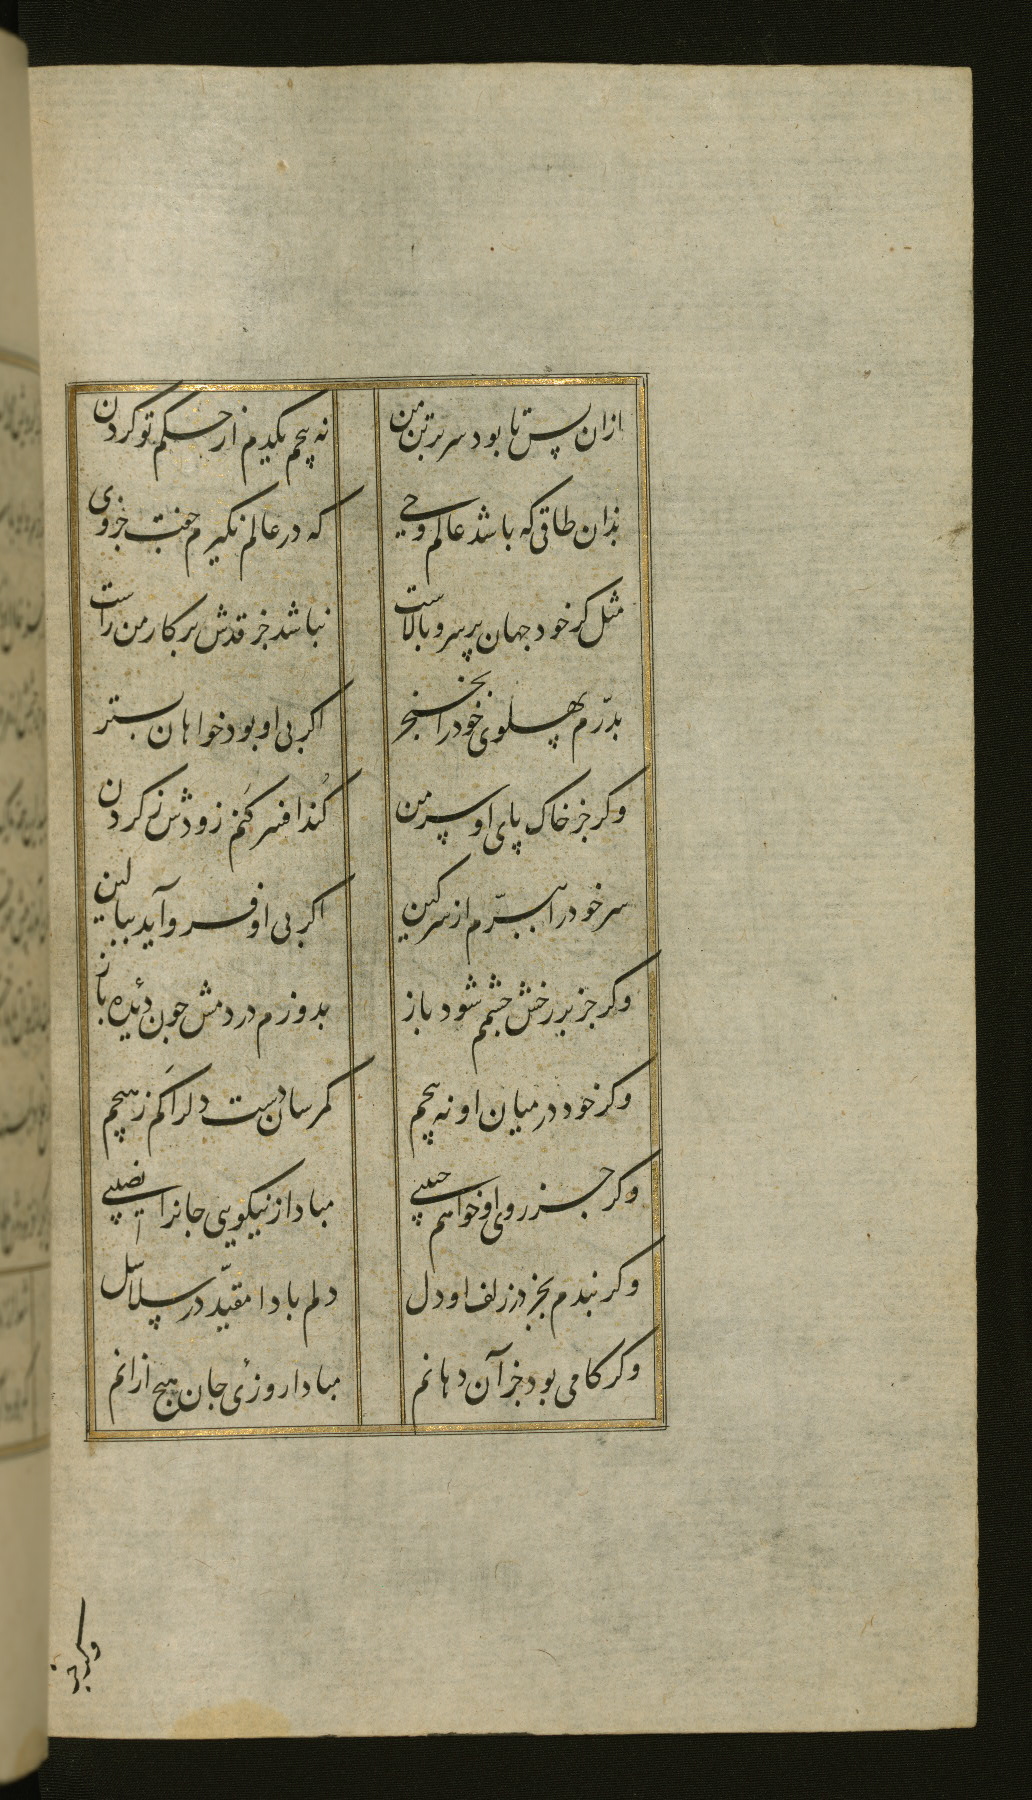 ازان پس تا بود سر بر تن من نه پیچم یکدم از حکم تو کردن
بذان طاقی که باشد عالم وحی که در عالم نکیرم جفت جز وی
مثل کر خود جهان پر سرو بالاست نباشد جز قدش بر کار من راست
بدرّم پهلوی خود را بخنجر اکر بی او بود خواهان بستر
وکر جز خاک پای او سر من کُند افسر کَنم زودش ز کردن
سر خود را ببرّم از سر کین اکر بی او فرو آید ببالین
وکر جز بر رخش چشمم شود باز بدوزم در دمش چون دیٔده باز
وکر خود در میان او نه پیچم کمر سان دست دلرا کَم ز هیچم
وکر جز روی او خواهم حبیبی مبادا از نیکویی جانرا نصیبی
وکر نبدم بجز در زلف او دل دلم بادا مقیّد در سلاسل
وکر کامی بود جز آن دهانم مبادا روزئ جان هیچ ازانم
وکر جز